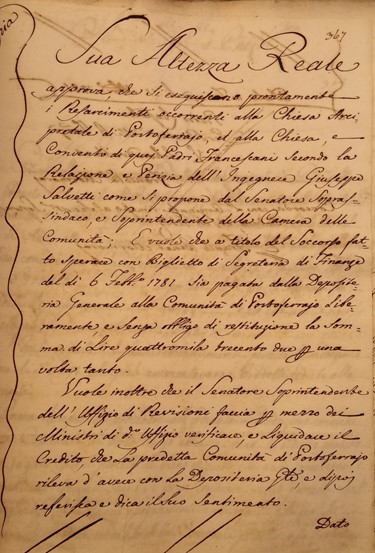 367
Sua Altezza Reale
approva, che si eseguiscano prontamente
i Resarcimenti occorrenti alla Chiesa Arci,
pretale di Portoferrajo, ed alla Chiesa, e
Convento di quei Padri Francescani secondo la
Relazione e Perizia dell' Ingegnere Giuseppe
Salvetti come si propone dal Senatore Sopras=
sindaco, e Soprintendente della Camera delle
Comunità; E vuole che a titolo del Soccorso fat,
to sperare con Biglietto di Segreteria di Finanze
del dì 6 Febb.º 1781 sia pagata dalla Deposite,
ria Generale alla Comunità di Portoferrajo libe,
ramente e senza obbligo di restituzione la som,
ma di Lire quattromila trecento due p una
volta tanto.
Vuole inoltre che il Senatore Soprintendente
dell' Uffizio di Revisioni faccia p mezzo dei
Ministri di d.º Uffizio verificare e liquidare il
Credito, che la predetta Comunità di Portoferrajo
rileva d' avere con la Depositeria Gle, e dipoi
referisca e dica il suo sentimento.
Dato